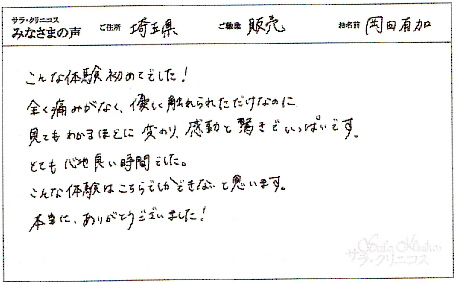 サラ・クリニコス
みなさまの声 ご住所 埼玉県 ご職業 販売 お名前 岡田有加
こんな体験初めてでした!
全く痛みがなく、優しく触れられただけなのに
見てもわかるほどに変わり、感動と驚きでいっぱいです。
とても心地良い時間でした。
こんな体験はこちらでしかできないと思います。
本当に、ありがとうございました!
サラ・クリニコス